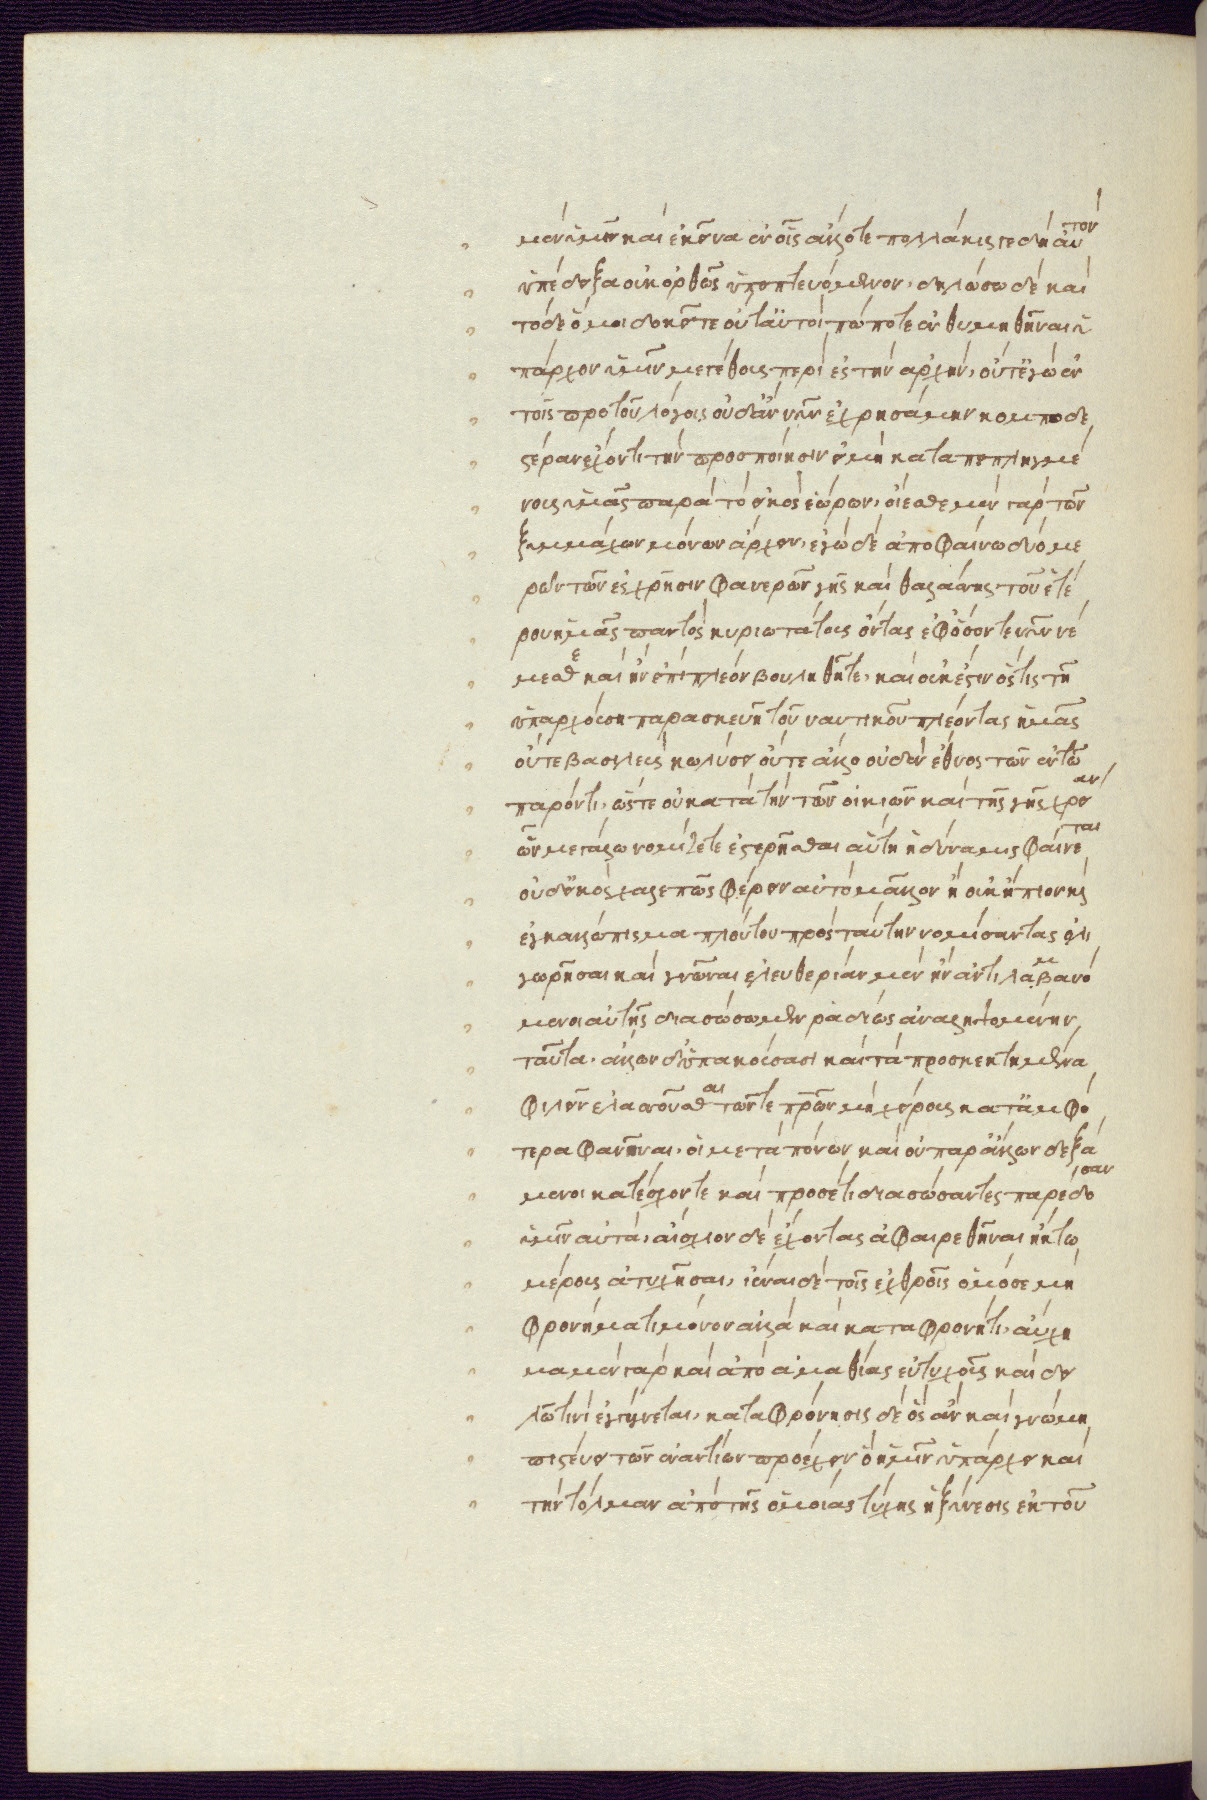 μὲν ὑμῖν καὶ ἐκεῖνα ἐν οἷς ἄλλοτε πολλάκις γε δὴ αὐτὸν
ὑπέδειξα οὐκ ὀρθῶς ὑποπτευόμενον, δηλώσω δὲ καὶ
τόδε ὅ μοι δοκεῖτε οὔτ' αὐτοὶ πώποτε ἐνθυμηθῆναι ὑ
πάρχον ὑμῖν μεγέθους περὶ ἐς τὴν ἀρχὴν, οὔτ' ἐγὼ ἐν
τοῖς πρὸ τοῦ λόγοις οὐδ' ἂν νῦν ἐχρησάμην κομποδε
στέραν ἔχοντι τὴν προσποίησιν εἰ μὴ καταπεπληγμέ
νους ὑμᾶς παρὰ τὸ εἰκὸς ἑώρων, οἴεσθε μὲν γὰρ τῶν
ξυμμάχων μόνων ἄρχειν, ἐγὼ δὲ ἀποφαίνω δύο με
ρῶν τῶν ἐς χρῆσιν φανερῶν γῆς καὶ θαλάσσης τοῦ ἑτέ
ρου ἡμᾶς παντὸς κυριωτάτους ὄντας ἐφ' ὅσον τε νῦν νέ
μεσθε καὶ ἢν ἐπιπλέον βουληθῆτε, καὶ οὐκ ἔστιν ὅστις τῆ
ὑπαρχούσῃ παρασκευῆ τοῦ ναυτικοῦ πλέοντας ἡμᾶς
οὔτε βασιλεὺς κωλύσει οὔτε ἄλλο οὐδὲν ἔθνος τῶν ἐν τῶ
παρόντι, ὥστε οὐ κατὰ τὴν τῶν οἰκιῶν καὶ τῆς γῆς χρείαν
ὧν μεγάλων νομίζετε ἐστερῆσθαι αὕτη ἡ δύναμις φαίνεται
οὐδ' εἰκὸς χαλεπῶς φέρειν αὐτὸ μᾶλλον ἢ οὐ κήπιον ἢ
ἐγκαλλώπισμα πλούτου πρὸς ταύτην νομίσαντας ὀλι
γωρῆσαι καὶ γνῶναι ἐλευθερίαν μὲν ἢν ἀντιλαμβανό
μενοι αὐτῆς διασώσωμεν ῥαδίως ἀναληψομένην
ταῦτα, ἄλλων δ' ὑπακούσασι καὶ τὰ προσκεκτημένα
φιλεῖν ἐλασσοῦσθαι τῶν τε πρῶν μὴ χείρους κατ' ἀμφό
τερα φανῆναι, οἳ μετὰ πόνων καὶ οὐ παρ' ἄλλων δεξά
μενοι κατέσχον τε καὶ προσέτι διασώσαντες παρέδοσαν
ὑμῖν αὐτά, αἴσχιον δὲ ἔχοντας ἀφαιρεθῆναι ἢ κτω
μένους ἀτυχῆσαι, ἰέναι δὲ τοῖς ἐχθροῖς ὁμόσε μὴ
φρονήματι μόνον ἀλλὰ καὶ καταφρονήτι, αὔχη
μα μὲν γὰρ καὶ ἀπὸ ἀμαθίας εὐτυχοῦς καὶ δει
λῶ τινὶ ἐγγίνεται, καταφρόνησις δὲ ὃς ἂν καὶ γνώμη
πιστεύει τῶν ἐναντίων προέχειν ὃ ἡμῖν ὑπάρχει καὶ
τὴν τόλμαν ἀπὸ τῆς ὁμοίας τύχης ἡ ξύνεσις ἐκ τοῦ